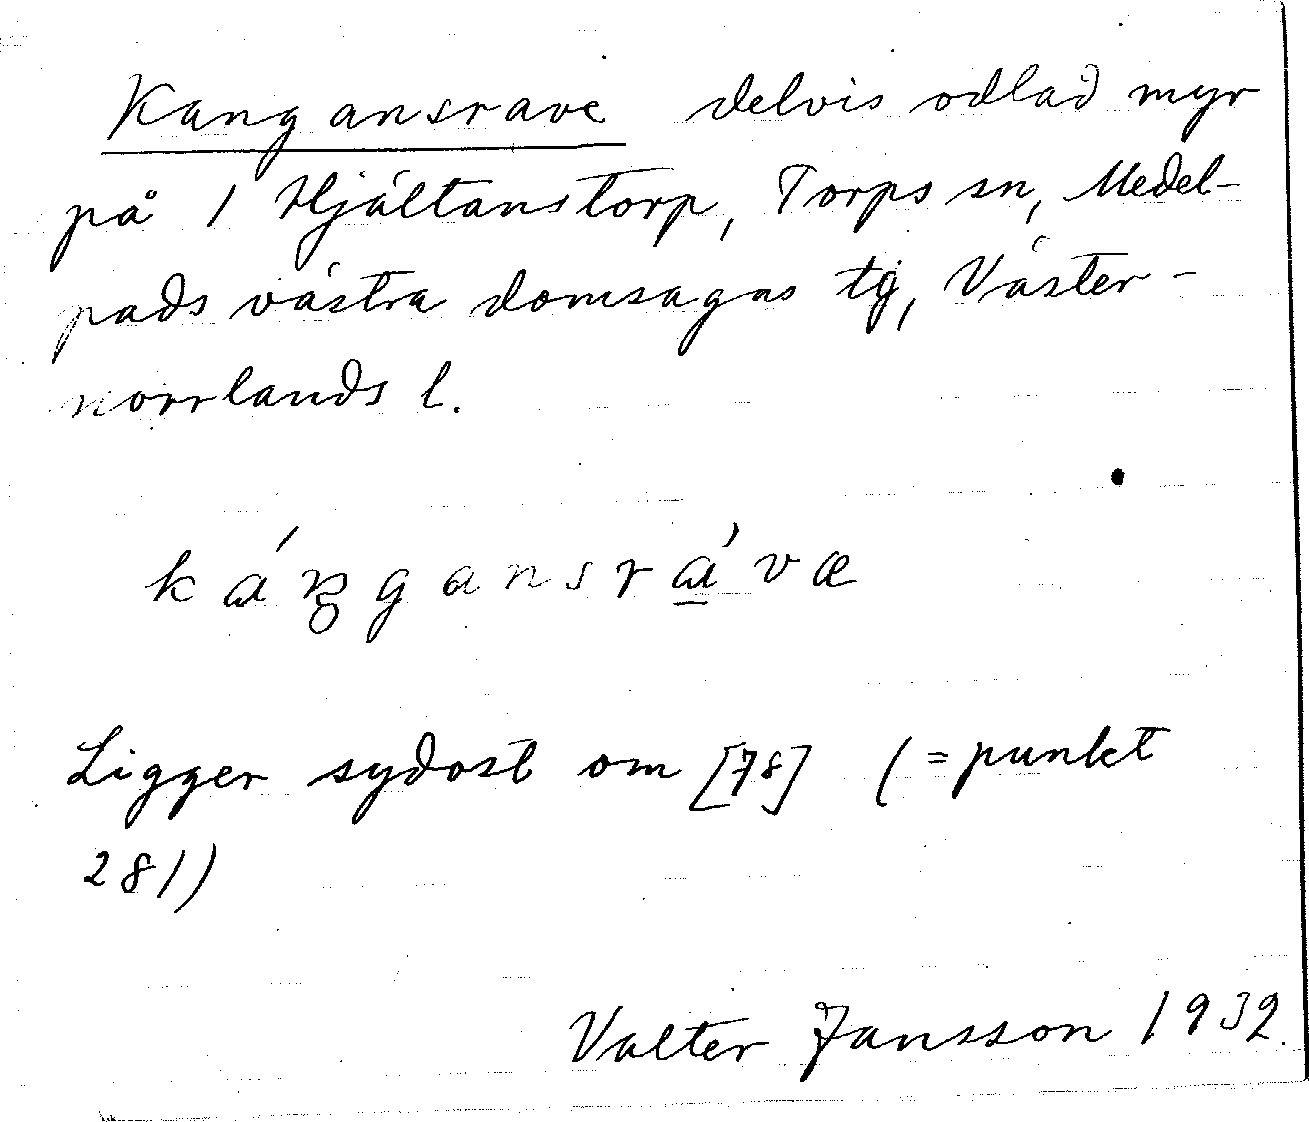 Kangansrave delvis odlad myr
på 1 Hjältanstorp, Torps sn, Medel-
pads västra domsagas tg, Väster-
norrlands l.
káŋgansrá̲væ
Ligger sydost om [78] (= punkt
281)
Valter Jansson 1932.